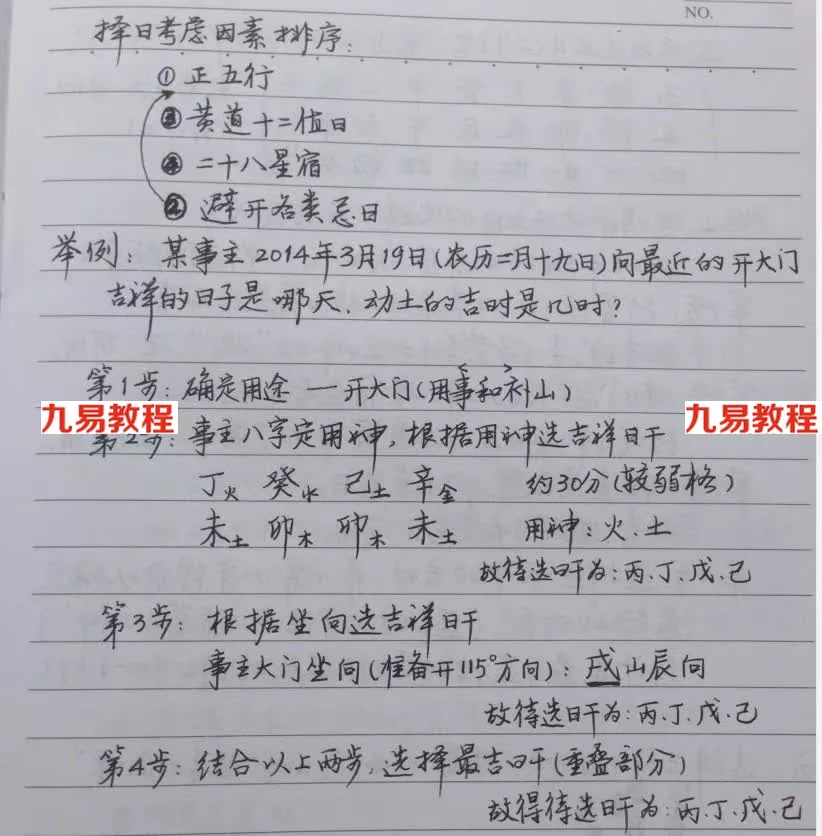 NO.
择日考虑因素排序:
① 正五行
③ 黄道十二值日
④ 二十八星宿
② 避开各类忌日
举例: 某事主2014年3月19日(农历二月十九日)问最近的开大门
吉祥的日子是哪天、动土的吉时是几时?
第1步: 确定用途 — 开大门(用事和补山)
九易教程
九易教程
第2步: 事主八字定用神, 根据用神选吉祥日干
丁火 癸水 己土 辛金 约30分(较弱格)
未土 卯木 卯木 未土 用神: 火.土
故待选日干为: 丙.丁.戊.己
第3步: 根据坐向选吉祥日干
事主大门坐向(准备开115°方向): 戌山辰向
故待选日干为: 丙.丁.戊.己
第4步: 结合以上两步, 选择最吉日干(重叠部分)
故得待选日干为: 丙.丁.戊.己